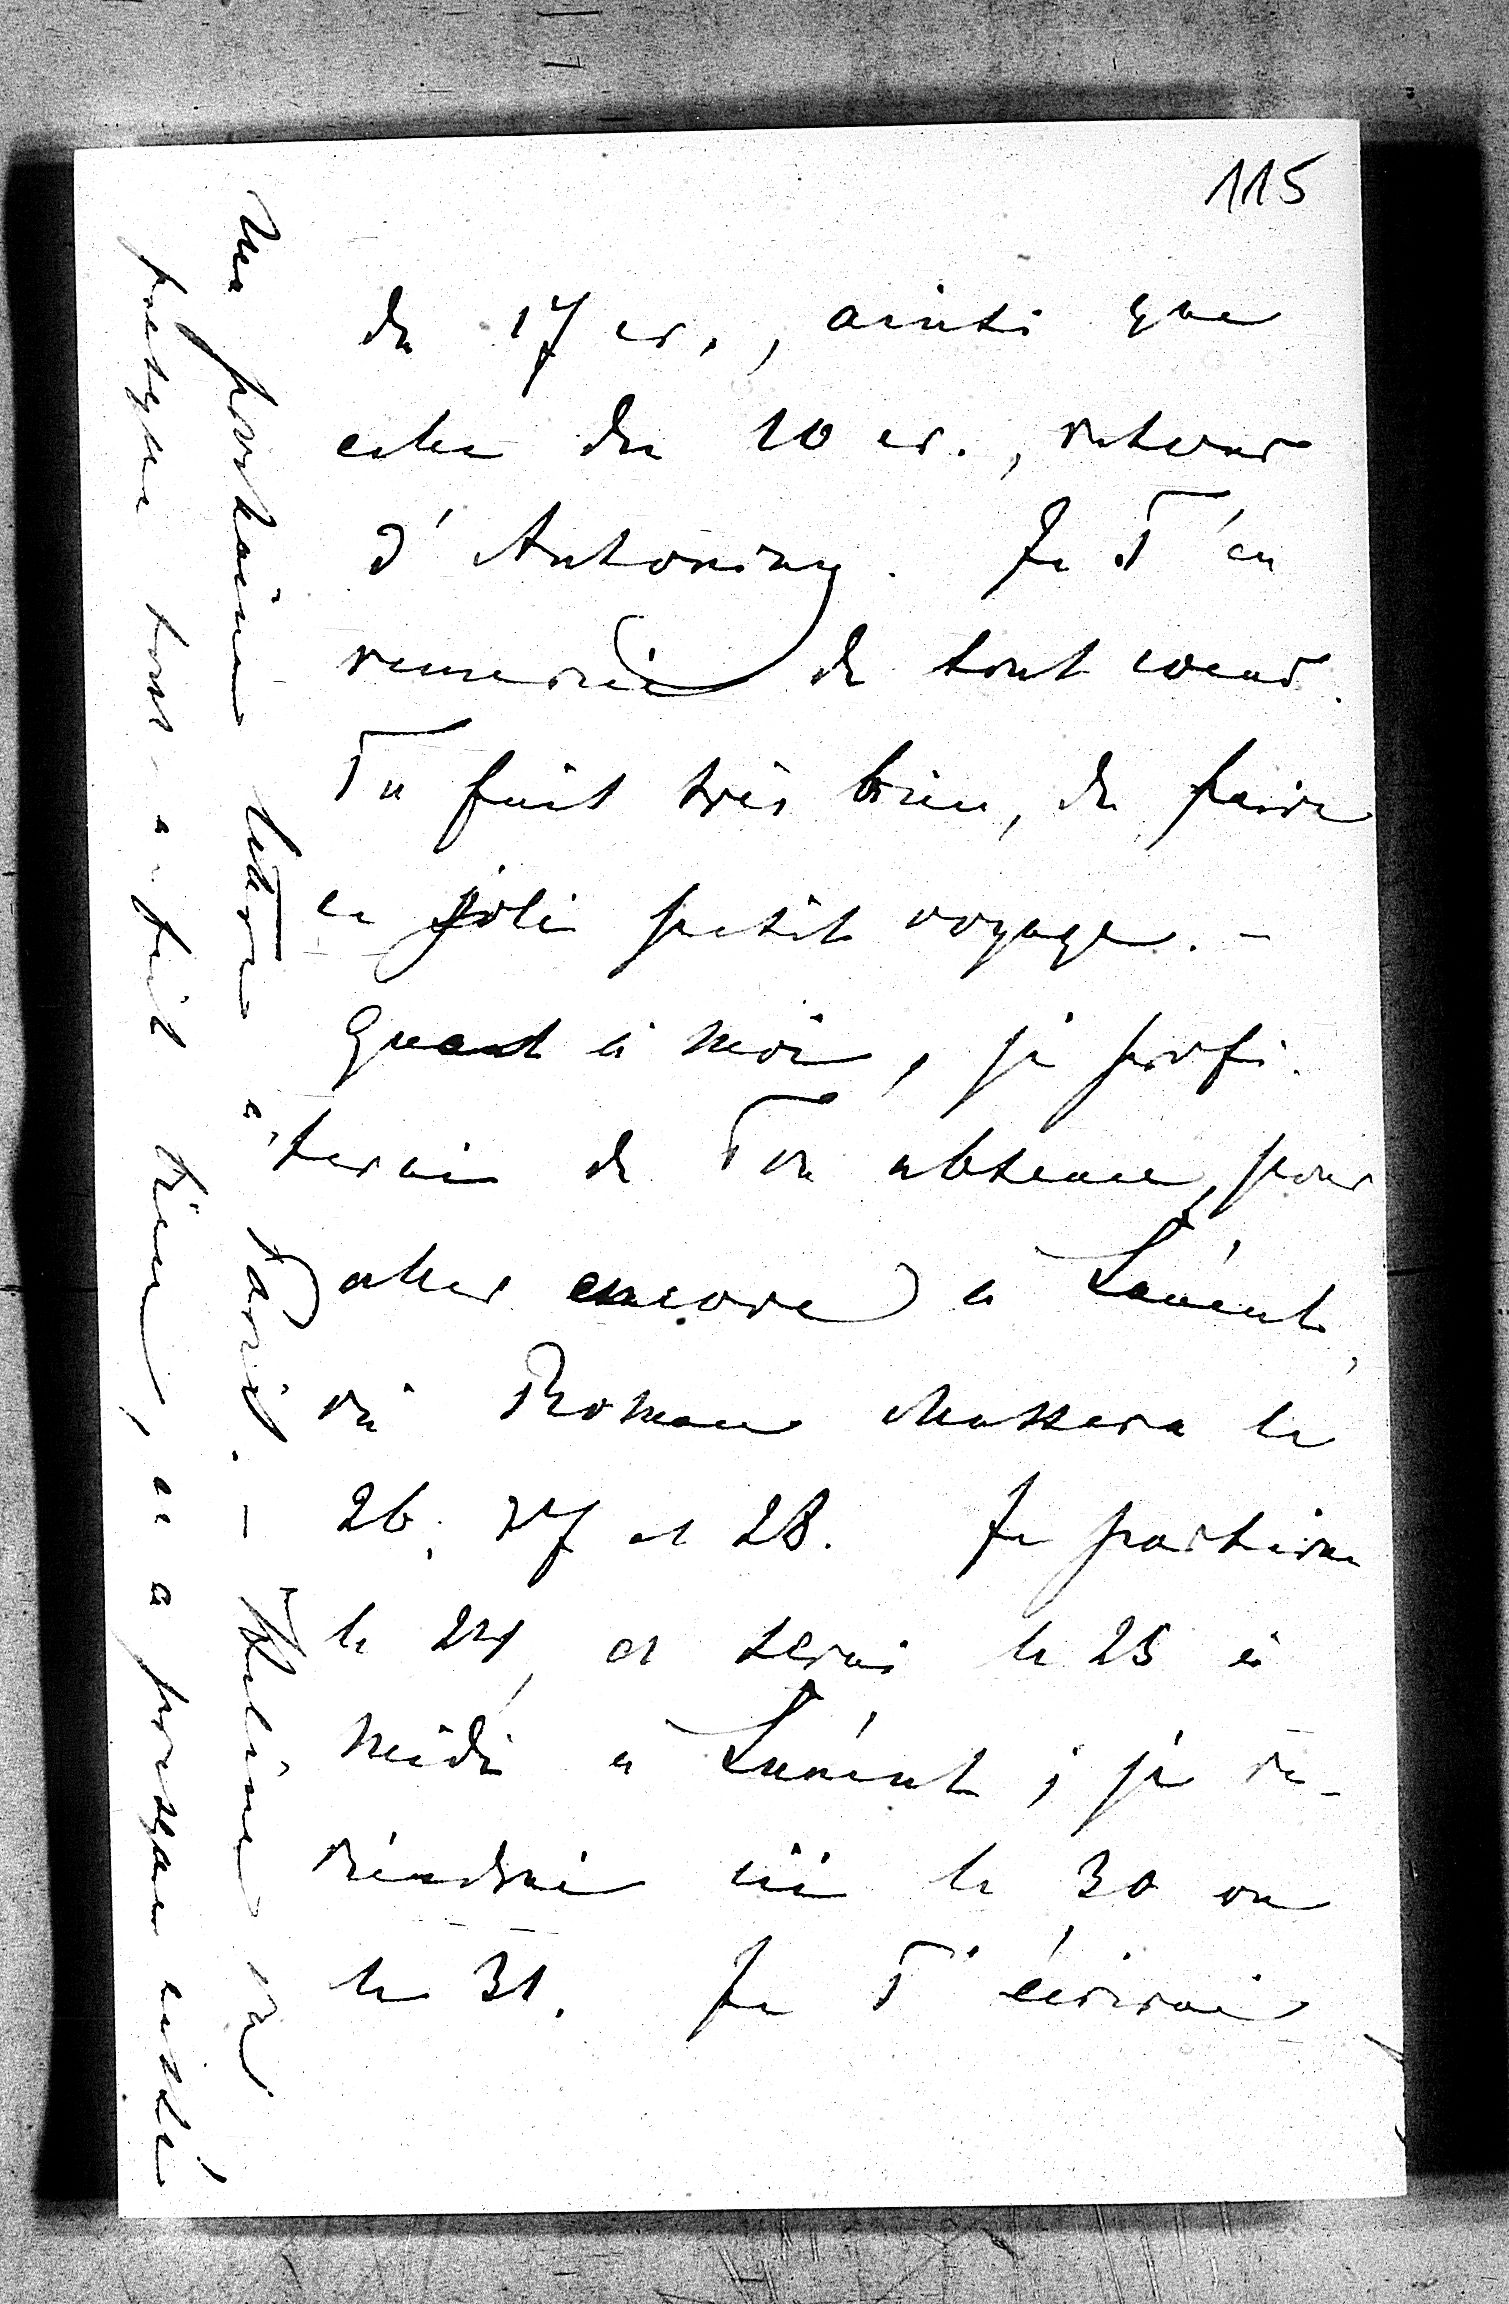 115
du 17 cr., ainsi que
celle du 10 cr., retour
d'Antoniny. Je T'en
remercie de tout coeur.
Tu fais très bien, de faire
ce joli petit voyage. –
Quant à moi, je profi-
terai de Ton absence, pour
aller encore à Łańcut,
où Roman chassera le
26, 27 et 28. Je partirai
le 24, et serai le 25 à
midi à Łańcut ; je re-
viendrai ici le 30 ou
le 31. Je T'écrirai
ma prochaine lettre à Paris. –
presque tout à fait bien, et a presque cessé